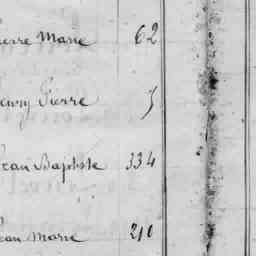 ierre Marie 62
enry Pierre 5
Jean Baptiste 334
Jean Marie 210